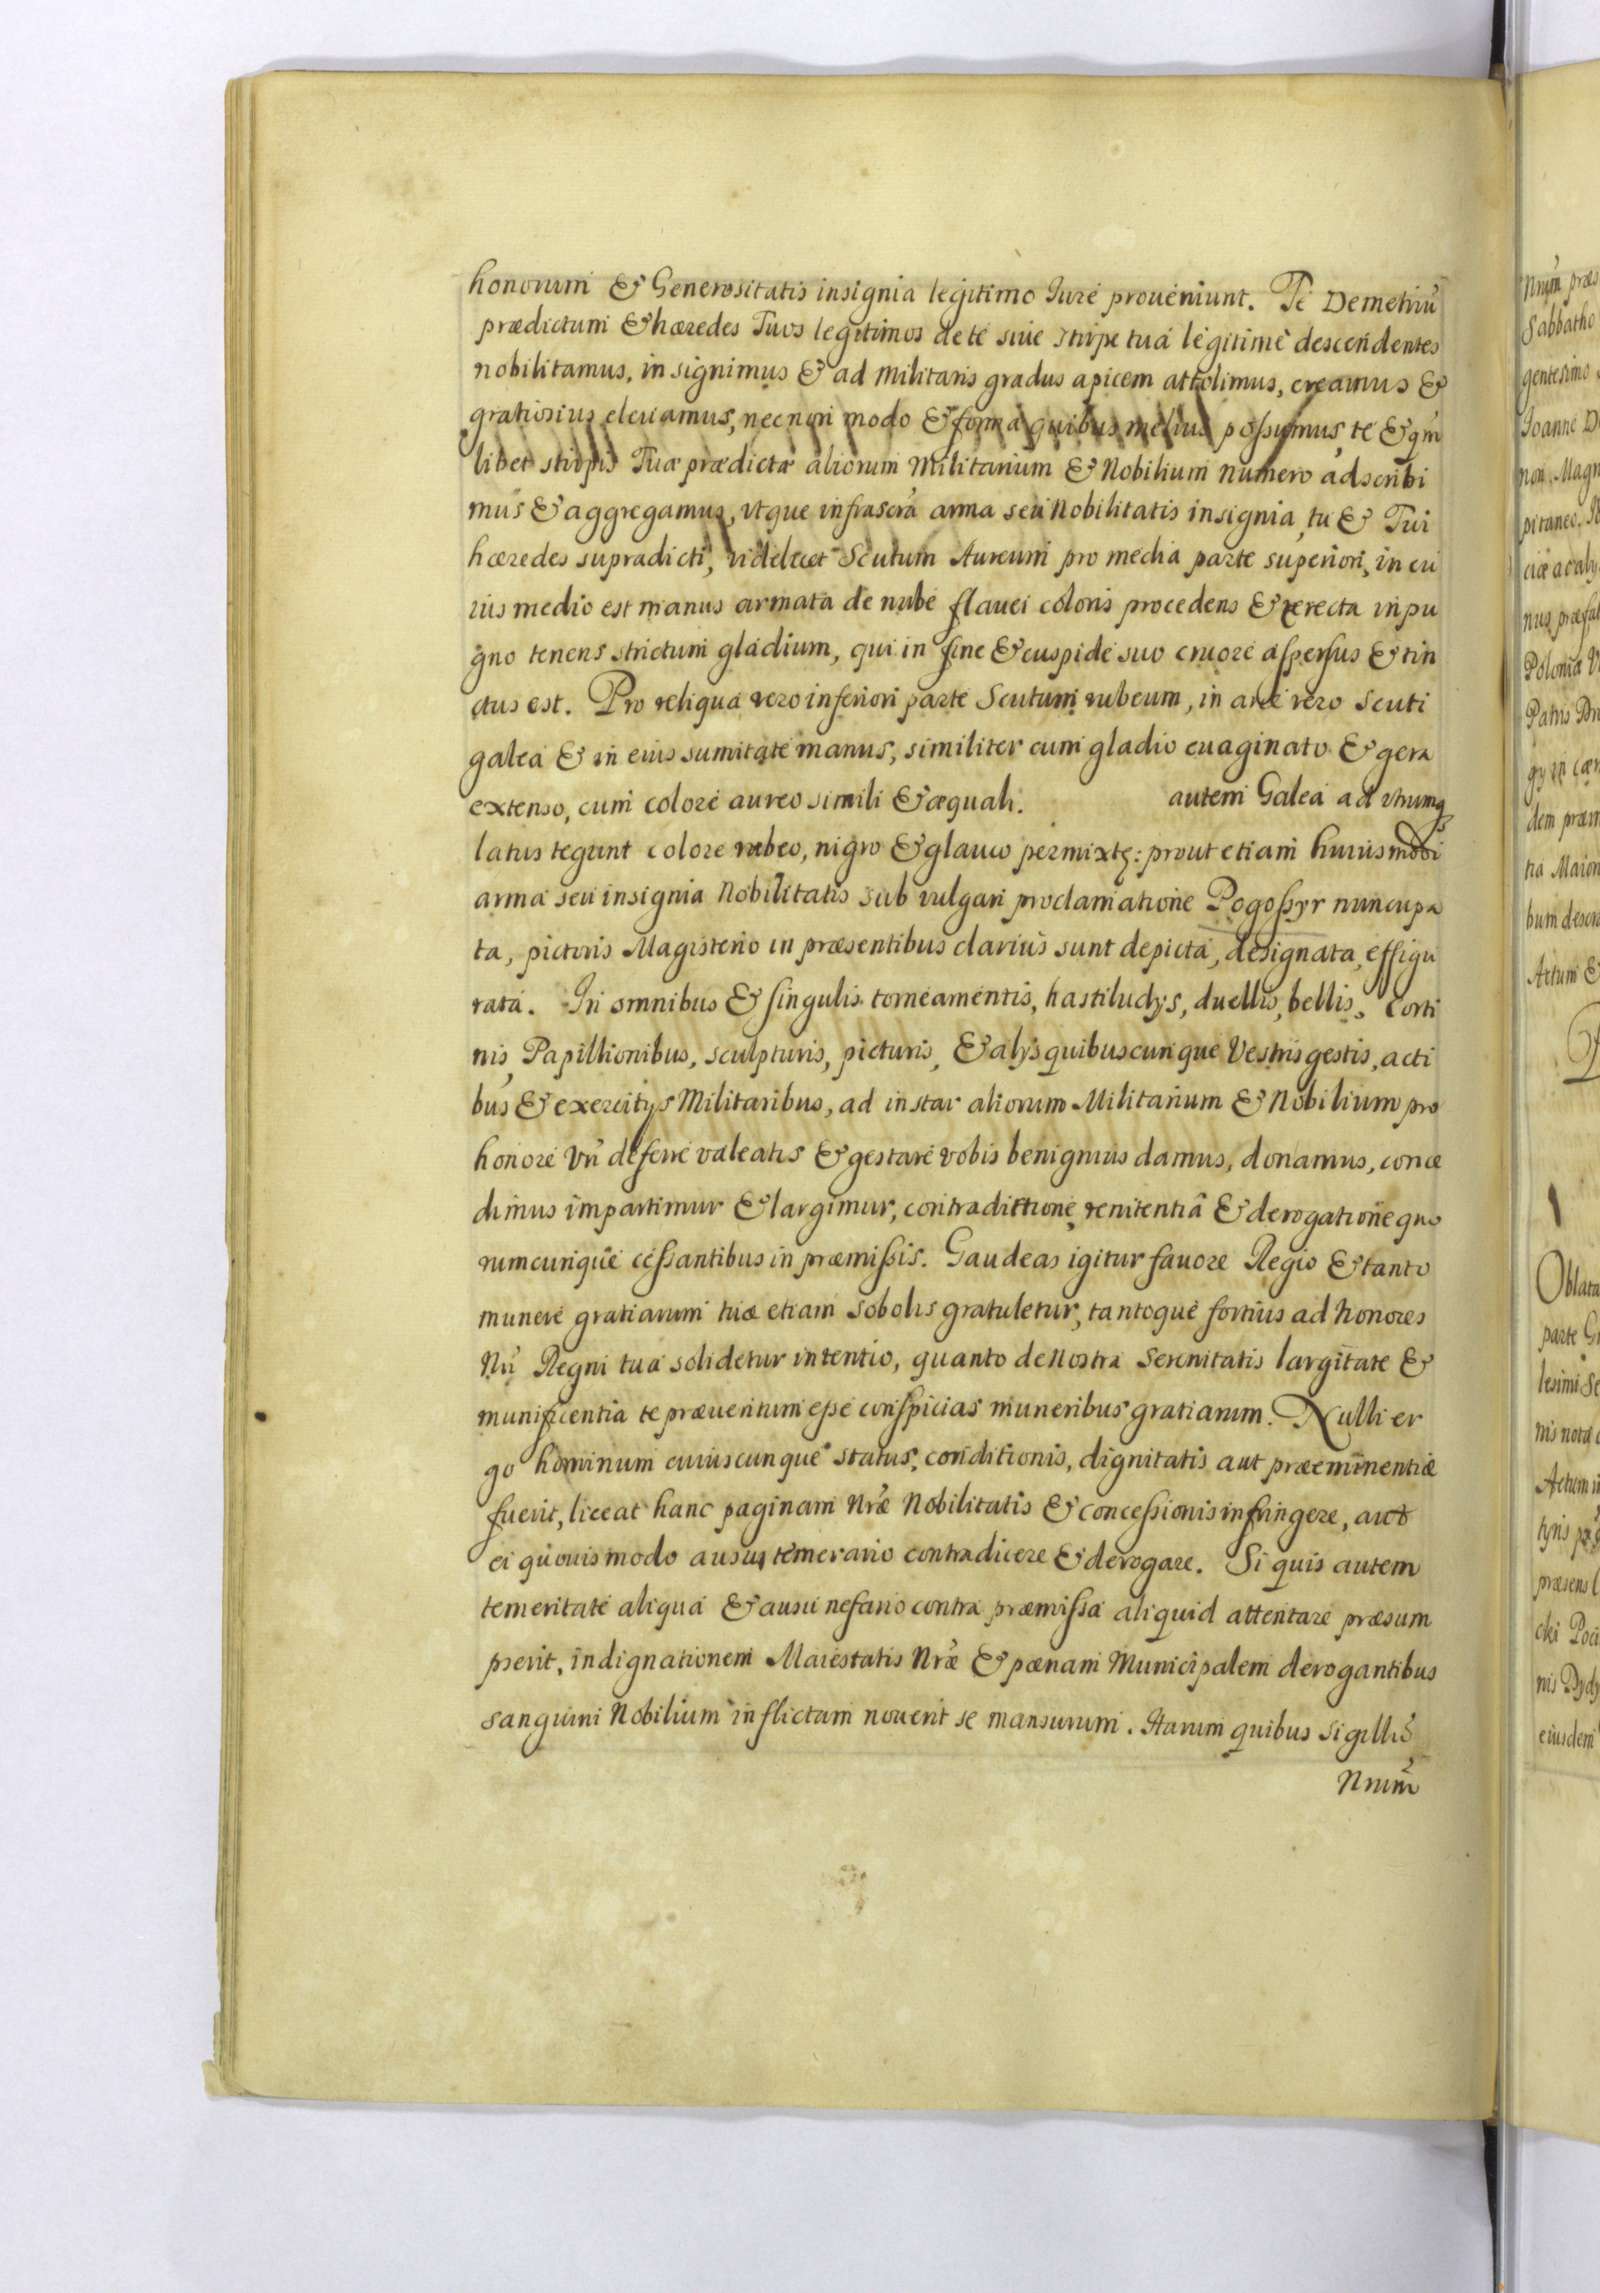 honorum & Generositatis insignia legitimo Iure proueniunt. Te Demetriũ
prædictum & hæredes Tuos legitimos de te siue stirpe tua legitimè descendentes
nobilitamus, insignimus & ad Militaris gradus apicem attolimus, creamus &
gratiosius eleuamus, necnon modo & forma quibus melius possumus, te & qm̃
libet stirpis Tuæ prædictæ aliorum Militarium & Nobilium numero adscribi
mus & aggregamus, vtque infrascrã arma seu Nobilitatis insignia, tu & Tui
hæredes supradicti, videlicet Scutum Aureum pro media parte superiori, in cu
ius medio est manus armata de nube flauei coloris procedens & erecta in pu
gno tenens strictum gladium, qui in fine & cuspide suo cruore aspersus & tin
ctus est. Pro reliqua vero inferiori parte Scutum rubeum, in arce vero Scuti
galea & in eius sumitate manus, similiter cum gladio euaginato & gera
extenso, cum colore aureo simili & æquali. autem Galea ad vtrumq
latus tegunt colore rubeo, nigro & glauco permixtę: prout etiam huiusmodi
arma seu insignia Nobilitatis sub vulgari proclamatione Pogossyr nuncupa
ta, pictoris Magisterio in præsentibus clarius sunt depicta, designata, effigu
rata. In omnibus & singulis torneamentis, hastiludys, duellis, bellis, Corti
nis, Papillionibus, sculpturis, picturis, & alys quibuscunque Vestris gestis, acti
bus & exercitys Militaribus, ad instar aliorum Militarium & Nobilium pro
honore Vr̃i deferre valeatis & gestare vobis benignius damus, donamus, conce
dimus impartimur & largimur, contradictione, renitentiâ & derogatione quo
rumcunque cessantibus in præmissis. Gaudeas igitur fauore Regio & tanto
munere gratiarum tuæ etiam sobolis gratuletur, tantoque fortius ad honores
Nr̃i Regni tua solidetur intentio, quanto de Nostra Serenitatis largitate &
munificentia te præuentum esse conspicias muneribus gratiarum. Nulli er
go hominum cuiuscunque status, conditionis, dignitatis aut præeminentiæ
fuerit, liceat hanc paginam Nr̃æ Nobilitatis & concessionis infringere, aut
ei quouis modo ausu temerario contradicere & derogare. Si quis autem
temeritate aliqua & ausu nefario contra præmissa aliquid attentare præsum
pserit, indignationem Maiestatis Nr̃æ & pœnam Municipalem derogantibus
sanguini Nobilium inflictam nouerit se mansurum. Harum quibus sigillũ
Nrum̃